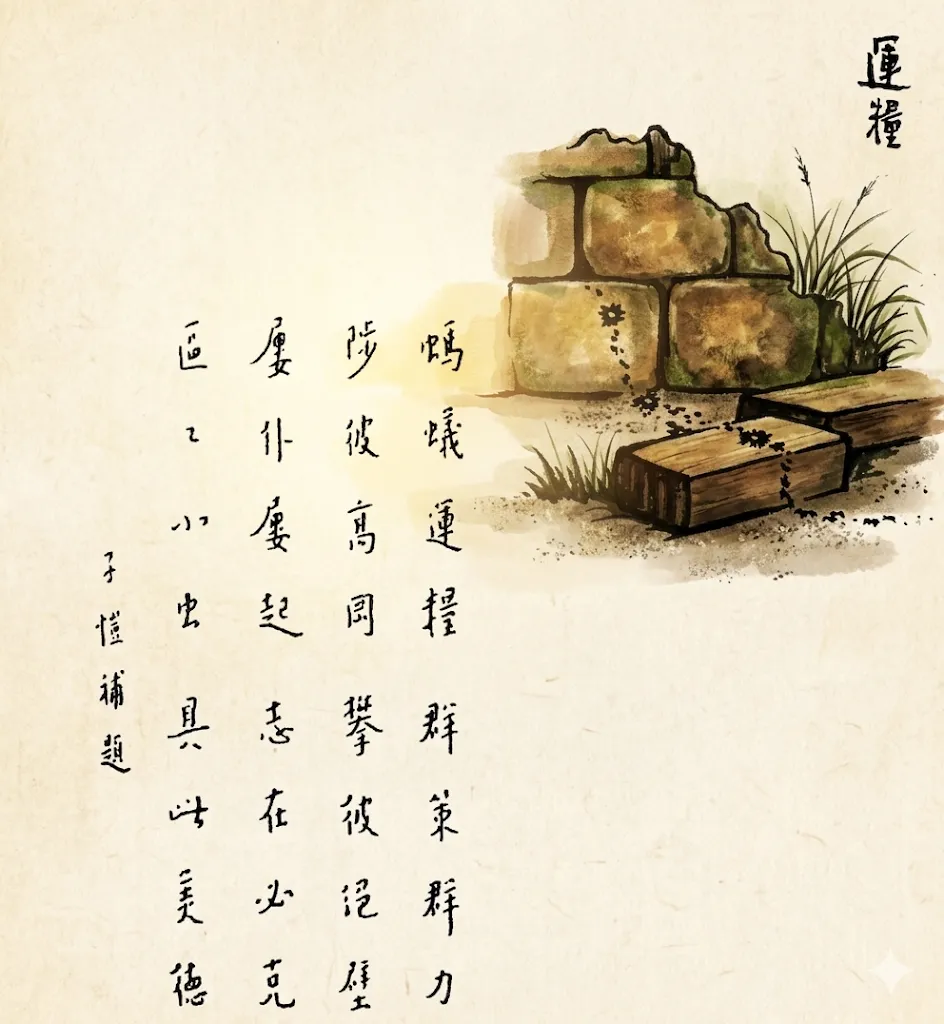 運糧
螞蟻運糧群策群力
陟彼高岡攀彼絕壁
屢仆屢起志在必克
區區小虫具此美德
子愷補題